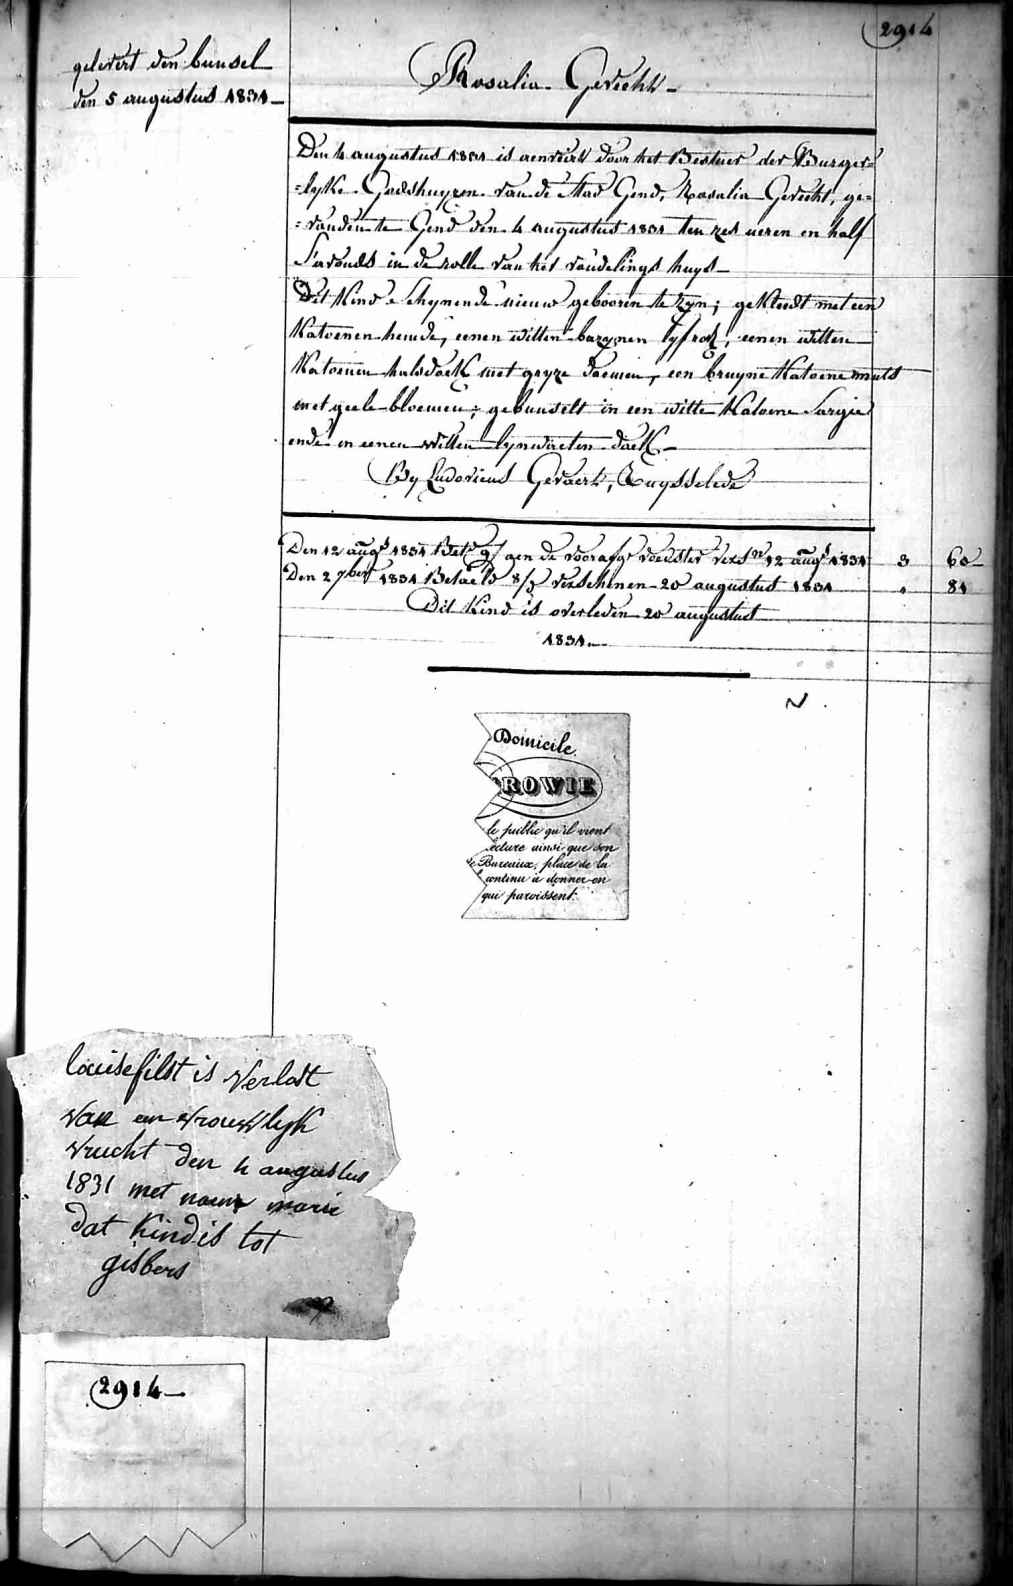 2914
gelevert den bunsel
den 5 augustus 1831
Rosalia Gevecht
Den 4 augustus 1831 is aenveert door het Bestuer der Burger=
=lyke Godshuyzen van de Stad Gend, Rosalia Gevecht, ge=
=vonden te Gend den 4 augustus 1831 ten zes ueren en half
S'avonds in de rolle van het vondelings huys
Dit Kind Schynende nieuw gebooren te zyn; gekleedt met een
Katoenen hemde, eenen witten bazynen lyfrok, eenen witten
Katoenen halsdoek met gryze bloemen, een bruyne Katoene muts
met geele bloemen; gebunselt in een witte Katoene Sargie
ende in eenen witten lynwaeten doek
By Ludovicus Gevaert, Ruysselede
Den 12 augt 1831 Betd aen de voorafge voedster versn 12 augt 1831 3 60
Den 2 7ber 1831 Betaeld verschenen 20 augustus 1831 " 81
Dit Kind is overleden 20 augustus
1831
Domicile.
ROWIE
le public qu'il vient
ecture ainsi que son
Bureaux, place de la
continu à donner en
qui paroissent.
louise filst is verlost
van en vrouwlyk
vrucht den 4 augustus
1831 met naem marie
dat Kind is tot
gisbers
2914